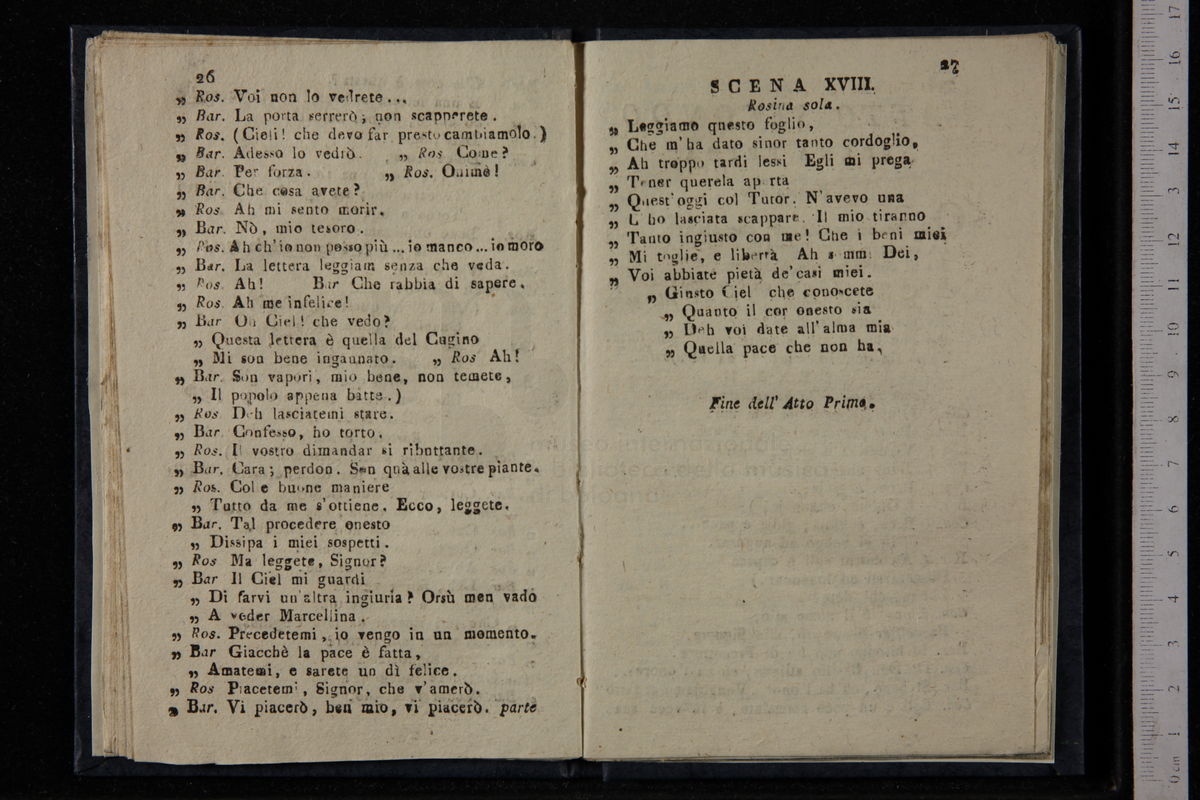 26
„ Ros. Voi non lo vedrete...
„ Bar. La porta serrerò; non scapperete.
„ Ros. (Cieli! che devo far presto cambiamolo.)
„ Bar. Adesso lo vedrò. „ Ros Come?
„ Bar. Per forza. „ Ros. Ouimè!
„ Bar. Che cosa avete?
„ Ros. Ah mi sento morir.
„ Bar. Nò, mio tesoro.
„ Ros. Ah ch'io non posso più ... io manco ... io moro
„ Bar. La lettera leggiam senza che veda.
„ Ros. Ah! Bar Che rabbia di sapere.
„ Ros. Ah me infelice!
„ Bar Oh Ciel! che vedo?
„ Questa lettera è quella del Cugino
„ Mi son bene ingannato. „ Ros Ah!
„ Bar. Son vapori, mio bene, non temete,
„ Il popolo appena batte.)
„ Ros. Deh lasciatemi stare.
„ Bar. Confesso, ho torto.
„ Ros. Il vostro dimandar si ributtante.
„ Bar. Cara; perdon. Son quà alle vostre piante.
„ Ros. Col e buone maniere
„ Tutto da me s'ottiene. Ecco, leggete.
„ Bar. Tal procedere onesto
„ Dissipa i miei sospetti.
„ Ros Ma leggete, Signor?
„ Bar Il Ciel mi guardi
„ Di farvi un'altra ingiuria? Orsù men vado
„ A veder Marcellina.
„ Ros. Precedetemi, io vengo in un momento.
„ Bar Giacchè la pace è fatta,
„ Amatemi, e sarete un dì felice.
„ Ros Piacetemi, Signor, che v'amerò.
„ Bar. Vi piacerò, ben mio, vi piacerò. parte
27
SCENA XVIII.
Rosina sola.
„ Leggiamo questo foglio,
„ Che m'ha dato sinor tanto cordoglio,
„ Ah troppo tardi lessi Egli mi prega
„ Tener querela aperta
„ Quest'oggi col Tutor. N'avevo una
„ L'ho lasciata scappare. Il mio tiranno
„ Tanto ingiusto con me! Che i beni miei
„ Mi toglie, e libertà Ah sommi Dei,
„ Voi abbiate pietà de'casi miei.
„ Giusto Ciel che conoscete
„ Quanto il cor onesto sia
„ Deh voi date all'alma mia
„ Quella pace che non ha.
Fine dell' Atto Primo.
museo internazionale
biblioteca della musica
di bologna